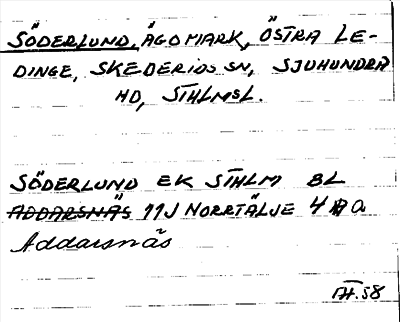 SÖDERLUND, ÄGOMARK, ÖSTRA LE-
DINGE, SKEDERIDS SN, SJUHUNDRA
HD, STHLMSL.
SÖDERLUND EK STHLM BL
ADDARSNÄS 11J NORRTÄLJE 4 a
Addarsnäs
58